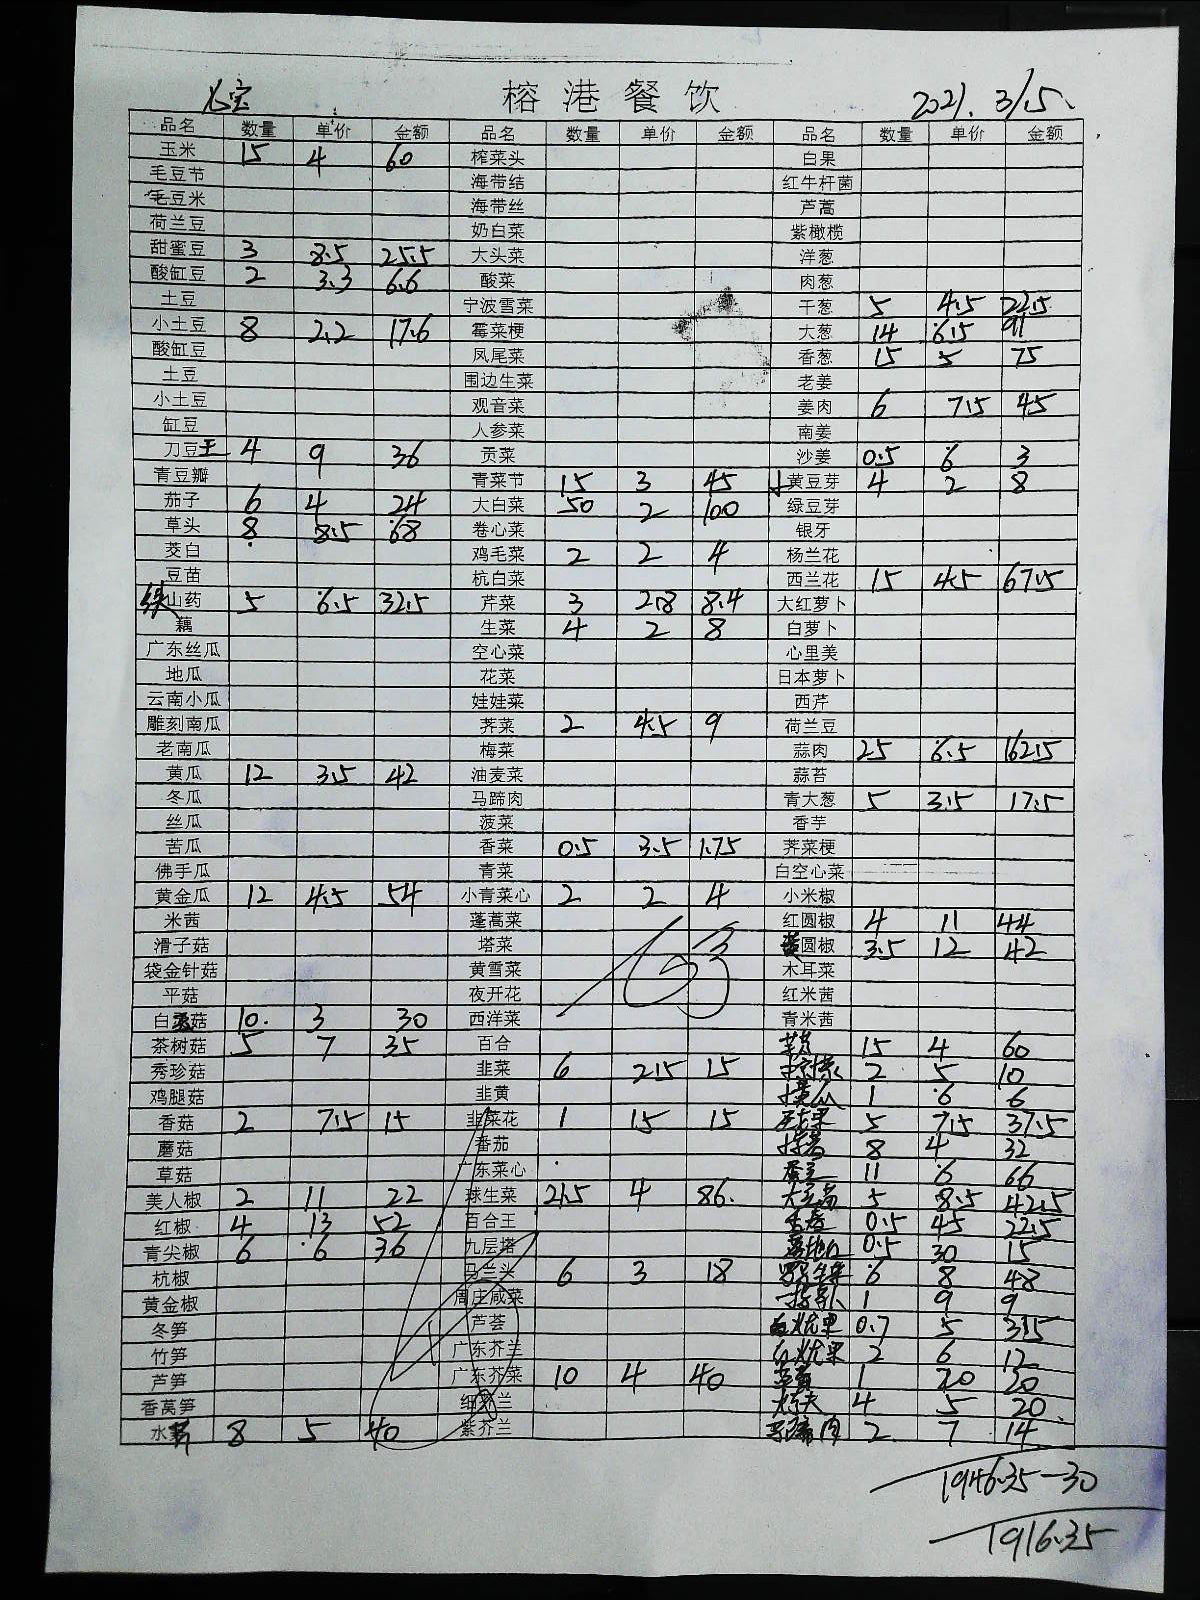 七宝 榕港餐饮 2021.3/15
品名 数量 单价 金额 品名 数量 单价 金额 品名 数量 单价 金额
玉米 15 4 60 榨菜头 白果
毛豆节 海带结 红牛杆菌
毛豆米 海带丝 芦蒿
荷兰豆 奶白菜 紫橄榄
甜蜜豆 3 8.5 25.5 大头菜 洋葱
酸缸豆 2 3.3 6.6 酸菜 肉葱
土豆 宁波雪菜 干葱 5 4.5 22.5
小土豆 8 2.2 17.6 霉菜梗 大葱 14 6.5 91
酸缸豆 凤尾菜 香葱 15 5 75
土豆 围边生菜 老姜
小土豆 观音菜 姜肉 6 7.5 45
缸豆 人参菜 南姜
刀豆王 4 9 36 贡菜 沙姜 0.5 6 3
青豆瓣 青菜节 15 3 45 黄豆芽 4 2 8
茄子 6 4 24 大白菜 50 2 100 绿豆芽
草头 8 8.5 68 卷心菜 银牙
茭白 鸡毛菜 2 2 4 杨兰花
豆苗 杭白菜 西兰花 15 4.5 67.5
铁山药 5 6.5 32.5 芹菜 3 2.8 8.4 大红萝卜
藕 生菜 4 2 8 白萝卜
广东丝瓜 空心菜 心里美
地瓜 花菜 日本萝卜
云南小瓜 娃娃菜 西芹
雕刻南瓜 荠菜 2 4.5 9 荷兰豆
老南瓜 梅菜 蒜肉 25 6.5 162.5
黄瓜 12 3.5 42 油麦菜 蒜苔
冬瓜 马蹄肉 青大葱 5 3.5 17.5
丝瓜 菠菜 香芋
苦瓜 香菜 0.5 3.5 1.75 荠菜梗
佛手瓜 青菜 白空心菜
黄金瓜 12 4.5 54 小青菜心 2 2 4 小米椒
米茜 蓬蒿菜 红圆椒 4 11 44
滑子菇 塔菜 黄圆椒 3.5 12 42
袋金针菇 黄雪菜 木耳菜
平菇 夜开花 红米茜
白玉菇 10 3 30 西洋菜 青米茜
茶树菇 5 7 35 百合 15 4 60
秀珍菇 韭菜 6 2.5 15 2 5 10
鸡腿菇 韭黄 1 6 6
香菇 2 7.5 15 韭菜花 1 15 15 5 7.5 37.5
蘑菇 番茄 8 4 32
草菇 广东菜心 11 6 66
美人椒 2 11 22 球生菜 21.5 4 86 5 8.5 42.5
红椒 4 13 52 百合王 0.5 45 22.5
青尖椒 6 6 36 九层塔 0.5 30 15
杭椒 马兰头 6 3 18 罗马生菜 6 8 48
黄金椒 周庄咸菜 1 9 9
冬笋 芦荟 0.7 5 3.5
竹笋 广东芥兰 2 6 12
芦笋 广东芥菜 10 4 40 草莓 1 20 20
香莴笋 细芥兰 4 5 20
水芹 8 5 40 紫芥兰 马蹄肉 2 7 14
63
1946.35-30
1916.35